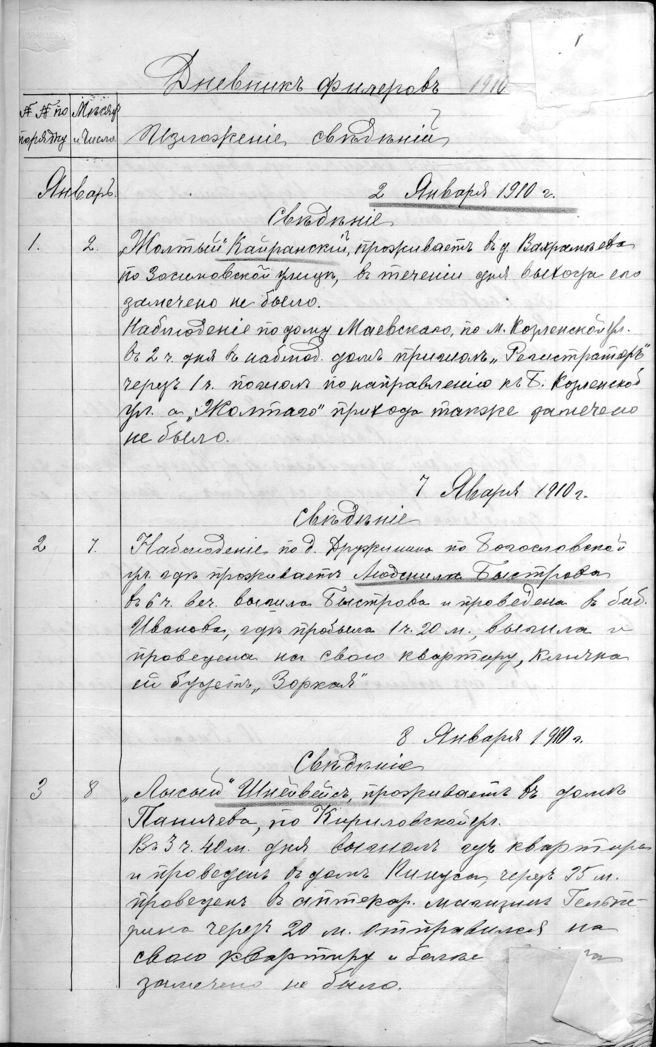 1
Дневникъ филеровъ 1910
№ № по порядку
Мѣсяц и число
Изложеніе свѣдѣній
Январь.
2 Января 1910 г.
Свѣдѣніе
1. 2. „Жолтый" Кайранскій, проживаетъ въ д. Вахрамѣева
по Засимовской улицѣ, въ теченіи дня выхода его
замечено не было.
Наблюденіе по дому Маевскаго, по М. Козленской ул.
въ 2 ч. дня въ наблюд. домъ пришолъ „Регистраторъ"
черезъ 1 ч. пошолъ по направленію къ Б. Козленской
ул. а „Жолтаго" прихода также замечено
не было.
7 Яваря 1910 г.
Свѣдѣніе
2 7. Наблюденіе по д. Дружинина по Богословской
ул. гдѣ проживаетъ Людмила Быстрова
въ 6 ч. веч. вышла Быстрова и проведена в биб.
Иванова, гдѣ пробыла 1 ч. 20 м., вышла и
проведена на свою квартиру, кличка
ей будетъ „Зоркая"
8 Января 1910 г.
Свѣдѣніе
3 8 „Лысый" Шнейвейсъ, проживаетъ въ домѣ
Паничева, по Кириловской ул.
Въ 3 ч. 40 м. дня вышелъ изъ квартиры
и проведенъ въ домъ Кинуса, черезъ 25 м.
проведенъ в аптекар. магазинъ Гельпе-
рина черезъ 20 м. отправился на
свою квартиру и более
замечено не было.